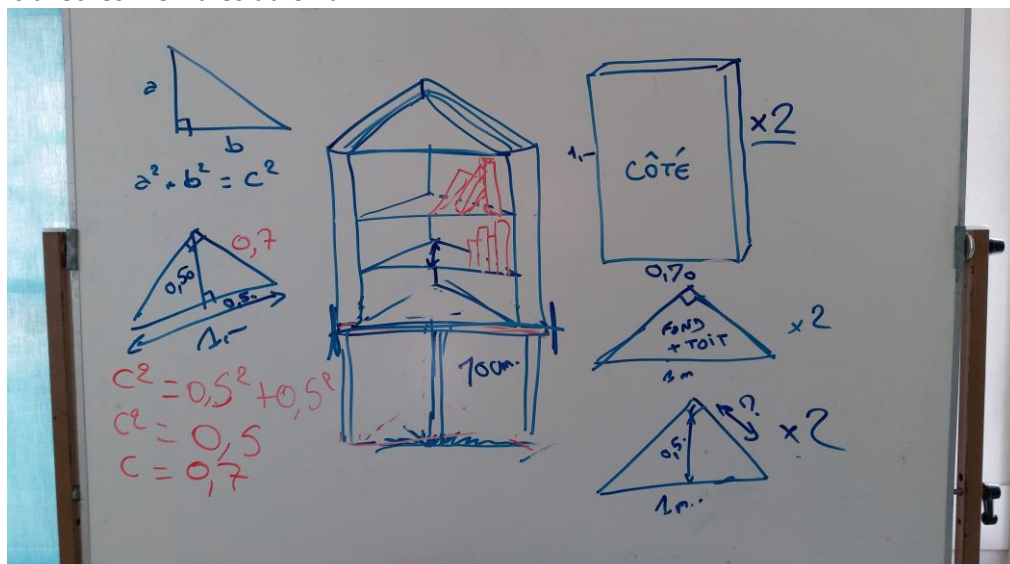 a
b
a² + b² = c²
0,7
0,50
0,5
1,-
c² = 0,5² + 0,5²
c² = 0,5
c = 0,7
70cm.
1,-
CÔTÉ
x2
0,70
FOND
+ TOIT
x2
1m
?
0,5
x2
1m.